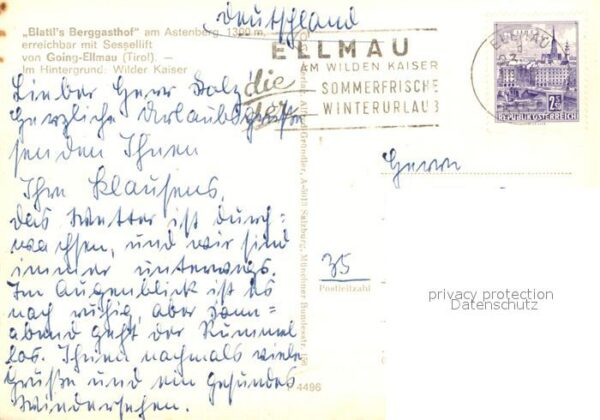 Deutschland
„Blattl's Berggasthof" am Astenberg 1300 m,
erreichbar mit Sessellift
von Going-Ellmau (Tirol). —
Im Hintergrund: Wilder Kaiser
ELLMAU
AM WILDEN KAISER
die
SOMMERFRISCHE
WINTERURLAUB
ELLMAU
2.50
REPUBLIK ÖSTERREICH
Lieber Herr Salz!
Herzliche Urlaubsgrüße
senden Ihnen
Ihre Klausens.
Das Wetter ist durch=
wachsen, und wir sind
immer unterwegs.
Im Augenblick ist es
noch ruhig, aber Sonn=
abend geht der Rummel
los. Ihnen nochmals viele
Grüße und ein gesundes
Wiedersehen.
Herrn
35
Postleitzahl
Alfred Gründler, A-5013 Salzburg, Münchner Bundesstr.
4486
privacy protection
Datenschutz